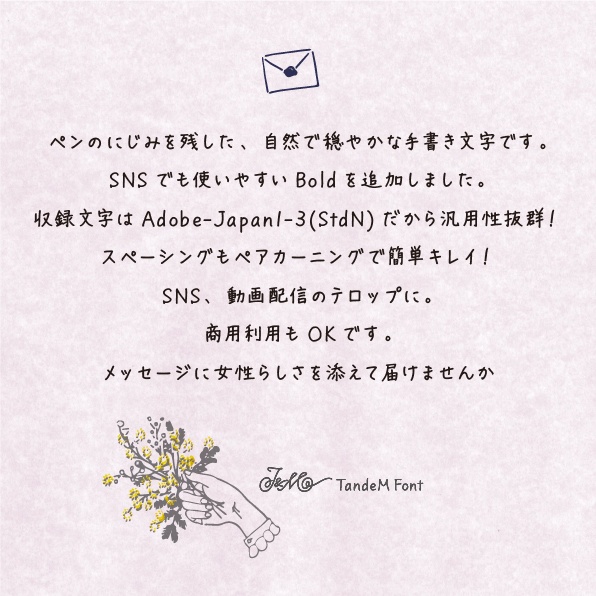 ペンのにじみを残した、自然で穏やかな手書き文字です。
SNSでも使いやすいBoldを追加しました。
収録文字はAdobe-Japan1-3(StdN)だから汎用性抜群!
スペーシングもペアカーニングで簡単キレイ!
SNS、動画配信のテロップに。
商用利用もOKです。
メッセージに女性らしさを添えて届けませんか
TandeM Font